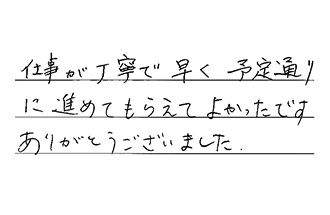 仕事が丁寧で早く 予定通り
に進めてもらえてよかったです
ありがとうございました.